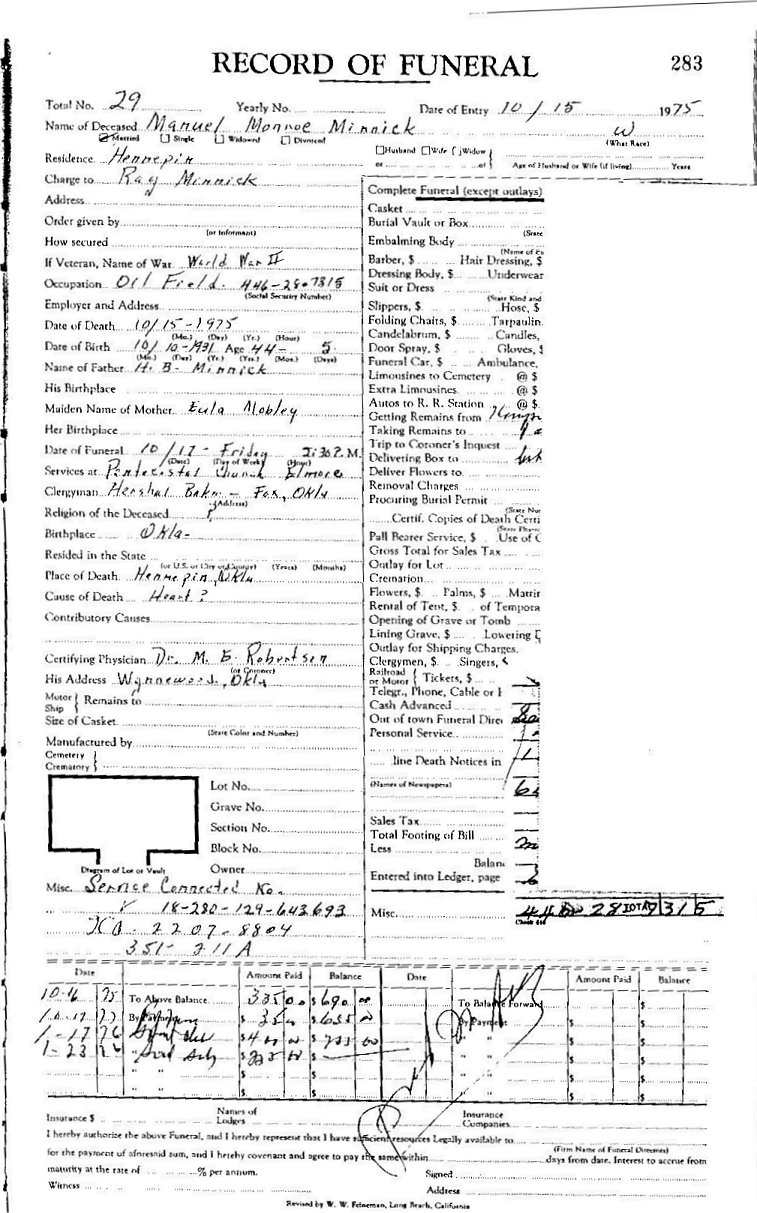 RECORD OF FUNERAL 283
Total No. 29 Yearly No. Date of Entry 10/15 1975
Name of Deceased Manuel Monroe Minnick W
Married Single Widowed Divorced (What Race)
Husband Wife Widow
Residence Hennepin or of Age of Husband or Wife (if living) Years
Charge to Ray Minnick
Address
Order given by
(or Informant)
How secured
If Veteran, Name of War World War II
Occupation Oil Field 446-28-7315
(Social Security Number)
Employer and Address
Date of Death 10/15-1975
(Mo.) (Day) (Yr.) (Hour)
Date of Birth 10/10-1931 Age 44- 5
(Mo.) (Day) (Yr.) (Yrs.) (Mos.) (Days)
Name of Father H. B. Minnick
His Birthplace
Maiden Name of Mother Eula Mobley
Her Birthplace
Date of Funeral 10/17- Friday 2:30 P.M.
(Date) (Day of Week) (Hour)
Services at Pentecostal Church Elmore
Clergyman Hershal Baker - Fox, Okla
(Address)
Religion of the Deceased P
Birthplace Okla-
Resided in the State
(or U.S. or City or County) (Years) (Months)
Place of Death Hennepin, Okla
Cause of Death Heart?
Contributory Causes
Certifying Physician Dr. M. E. Robertson
(or Coroner)
His Address Wynnewood, Okla
Motor Ship Remains to
Size of Casket
(State Color and Number)
Manufactured by
Cemetery
Crematory
Lot No.
Grave No.
Section No.
Block No.
Diagram of Lot or Vault Owner
Misc. Service Connected No.
18-280-129-643693
2207-8804
351-211A
Complete Funeral (except outlays)
Casket
Burial Vault or Box
(State
Embalming Body
(Name of
Barber, $ Hair Dressing, $
Dressing Body, $ Underwear
Suit or Dress
(State Kind and
Slippers, $ Hose, $
Folding Chairs, $ Tarpaulin
Candelabrum, $ Candles,
Door Spray, $ Gloves, $
Funeral Car, $ Ambulance,
Limousines to Cemetery @ $
Extra Limousines @ $
Autos to R. R. Station @ $
Getting Remains from
Taking Remains to
Trip to Coroner's Inquest
Delivering Box to
Deliver Flowers to
Removal Charges
Procuring Burial Permit
(State
Certif. Copies of Death Certi
(State
Pall Bearer Service, $ Use of
Gross Total for Sales Tax
Outlay for Lot
Cremation
Flowers, $ Palms, $
Rental of Tent, $ of Tempora
Opening of Grave or Tomb
Lining Grave, $ Lowering
Outlay for Shipping Charges
Clergymen, $ Singers,
Railroad or Motor Tickers, $
Telegr., Phone, Cable or
Cash Advanced
Out of town Funeral Direc
Personal Service
line Death Notices in
(Names of Newspapers)
Sales Tax
Total Footing of Bill
Less
Balanc
Entered into Ledger, page
Misc. 28 TOTAL
Date Amount Paid Balance Date Amount Paid Balance
10-16 75 To Above Balance 335 00 $690 00 To Balance Forward $
10-17 75 By Payment $ $ By Payment $
1-17 76 $
1-23 76 $
" " $ $ " " $
" " $ $ " " $
Insurance $ Names of Lodges Insurance Companies
I hereby authorize the above Funeral, and I hereby represent that I have sufficient resources Legally available to
(Firm Name of Funeral Directors)
for the payment of aforesaid sum, and I hereby covenant and agree to pay the same within days from date. Interest to accrue from
maturity at the rate of % per annum. Signed
Witness Address
Revised by W. W. Feineman, Long Beach, California